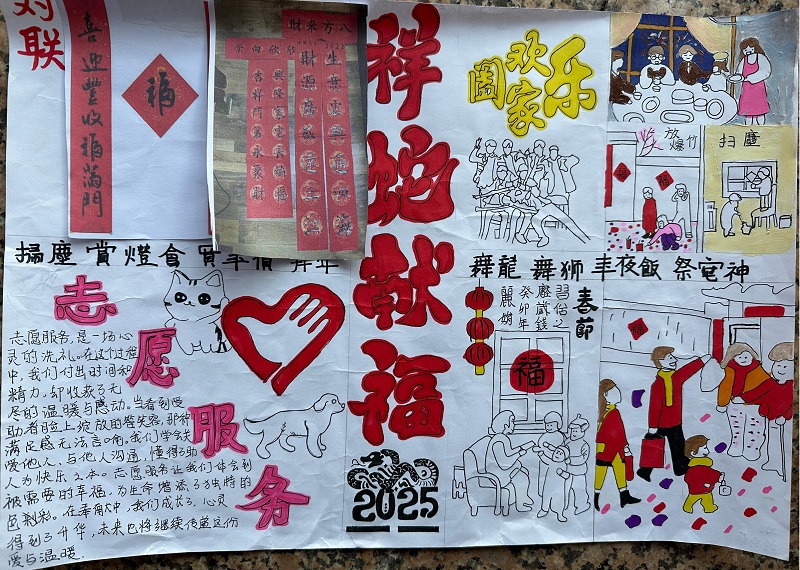 对联
喜迎豐收福满門
福
八方来財
欣欣向荣
財源廣進
祥蛇献福
2025
欢乐
阖家
放爆竹
扫塵
福
掃塵 賞燈會 買年貨 拜年
舞龍 舞獅 年夜飯 祭竈神
志愿服务
志愿服务,是一场心
灵的洗礼。在这个过程
中,我们付出时间和
精力,却收获了无
尽的温暖与感动。当看到受
助者脸上绽放的笑容,那种
满足感无法言喻。我们学会关
爱他人,与他人沟通,懂得了助
人为快乐之本。志愿服务让我们体会到
被需要的幸福,为生命增添了独特的
色彩。在奉献中,我们成长了,心灵
得到了升华,未来也将继续传递这份
爱与温暖.
春節
習俗之
壓歲钱
癸卯年
福
福